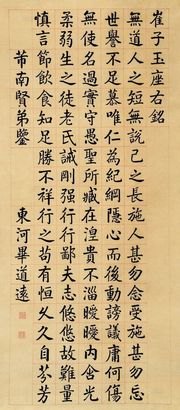 崔子玉座右銘
無道人之短無說己之長施人甚勿念受施甚勿忘
世譽不足慕唯仁為紀綱隱心而後動謗議庸何傷
無使名過實守愚聖所臧在涅貴不淄曖曖內含光
柔弱生之徒老氏誡剛强行行鄙夫志悠悠故難量
慎言節飲食知足勝不祥行之苟有恒久久自芬芳
芾南賢弟鑒
東河畢道遠